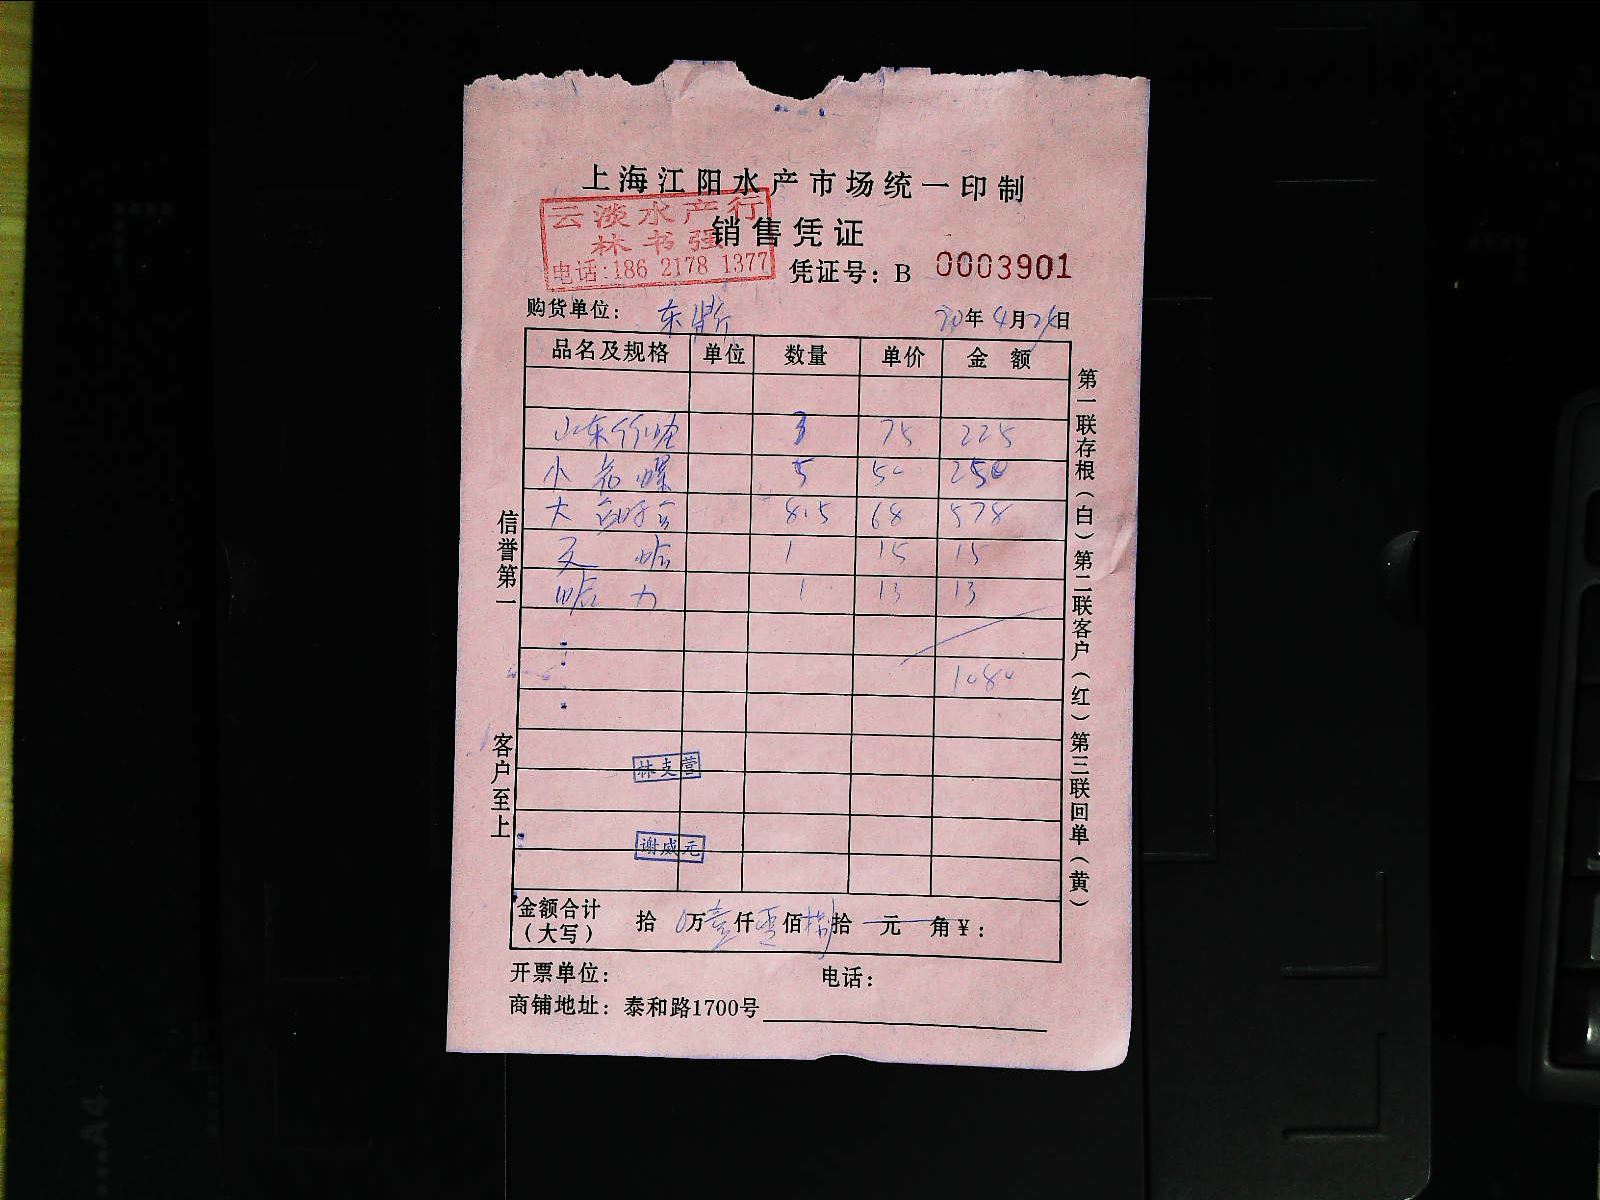 上海江阳水产市场统一印制
云淡水产行
林书强
电话:186 2178 1377
销售凭证
凭证号：B 0003901
购货单位：东鼎
年4月 日
品名及规格 单位 数量 单价 金额
山东 3 75 225
小 螺 5 50 250
大 8.5 68 578
文蛤 1 15 15
蛤 1 13 13
1080
林支营
谢成元
金额合计（大写） 拾 0万壹仟零佰捌拾 元 角￥：
开票单位： 电话：
商铺地址：泰和路1700号
信誉第一 客户至上
第一联存根（白）第二联客户（红）第三联回单（黄）